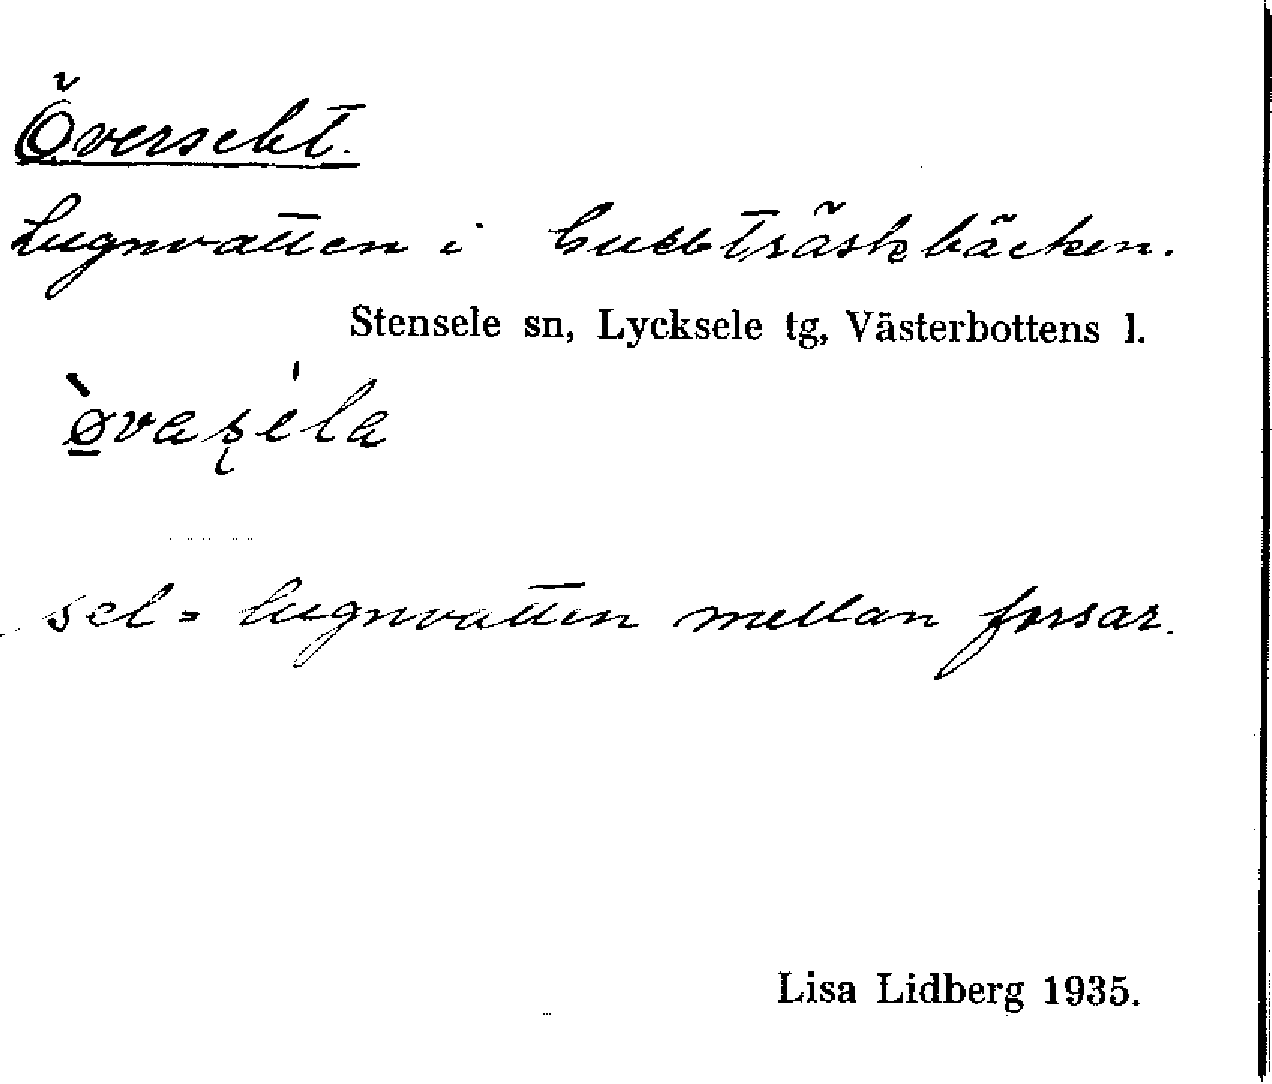 Överselet.
Lugnvatten i Gubbträskbäcken.
Stensele sn, Lycksele tg, Västerbottens l.
sel = lugnvatten mellan forsar.
Lisa Lidberg 1935.